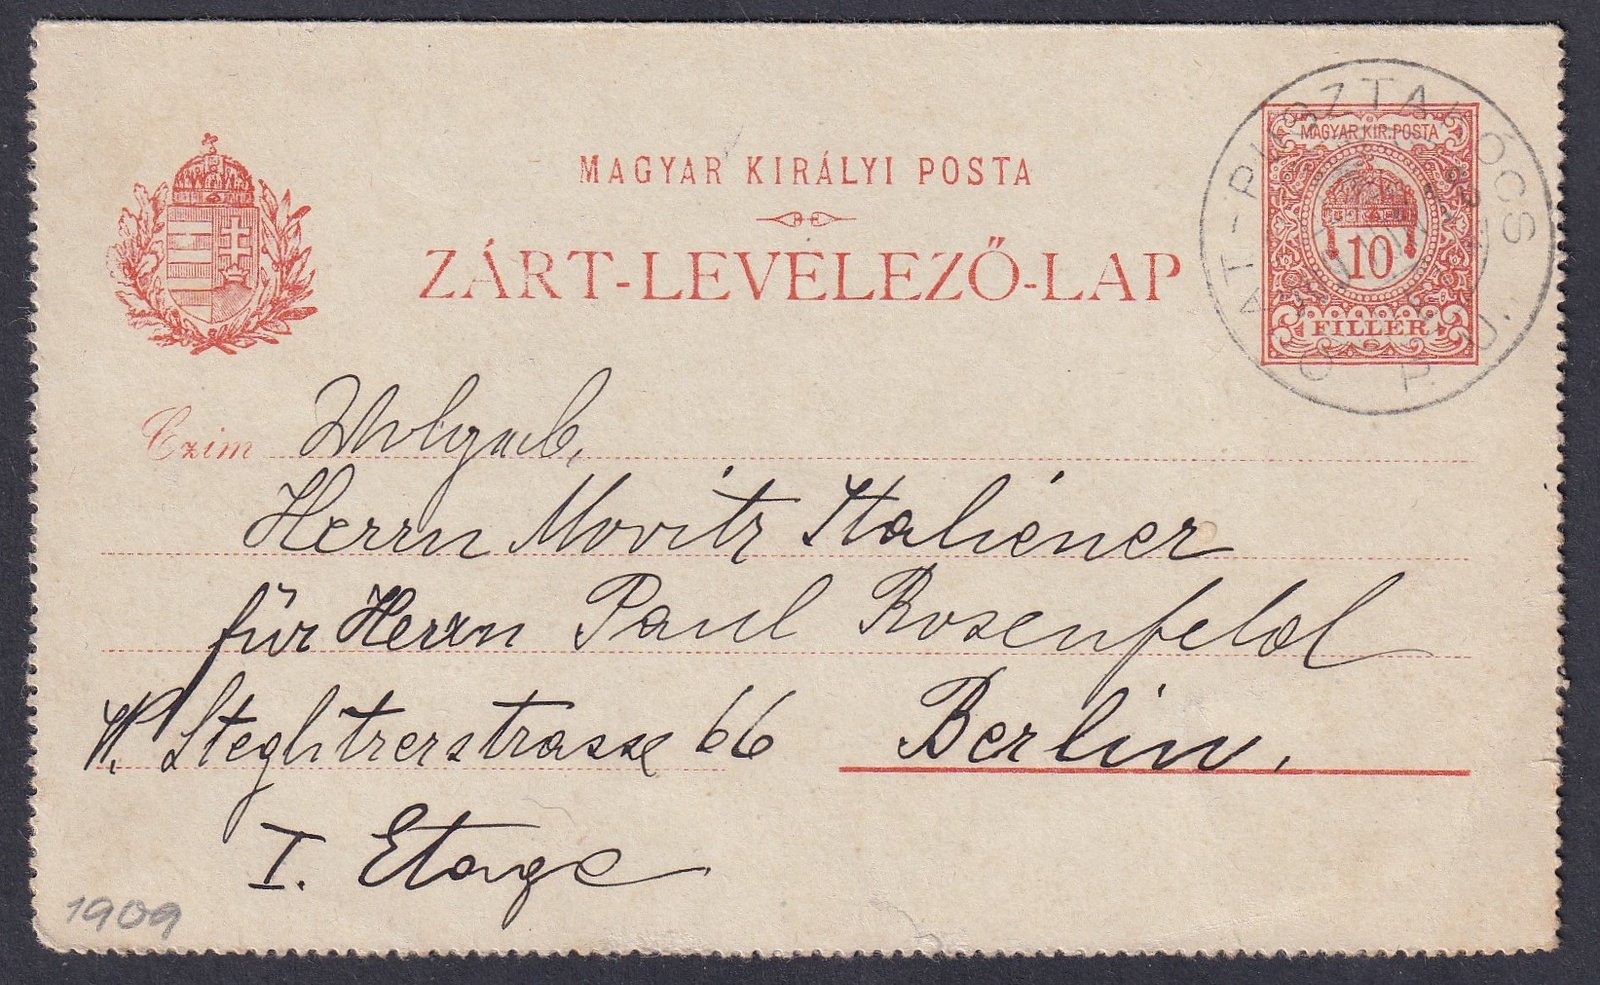 MAGYAR KIRÁLYI POSTA
ZÁRT-LEVELEZŐ-LAP
MAGYAR KIR. POSTA
10
FILLÉR
P.U.
Czim Wolgeb.
Herrn Moritz Italiener
für Herrn Paul Rosenfeld
W. Steglitzerstrasse 66 Berlin.
I. Etage
1909